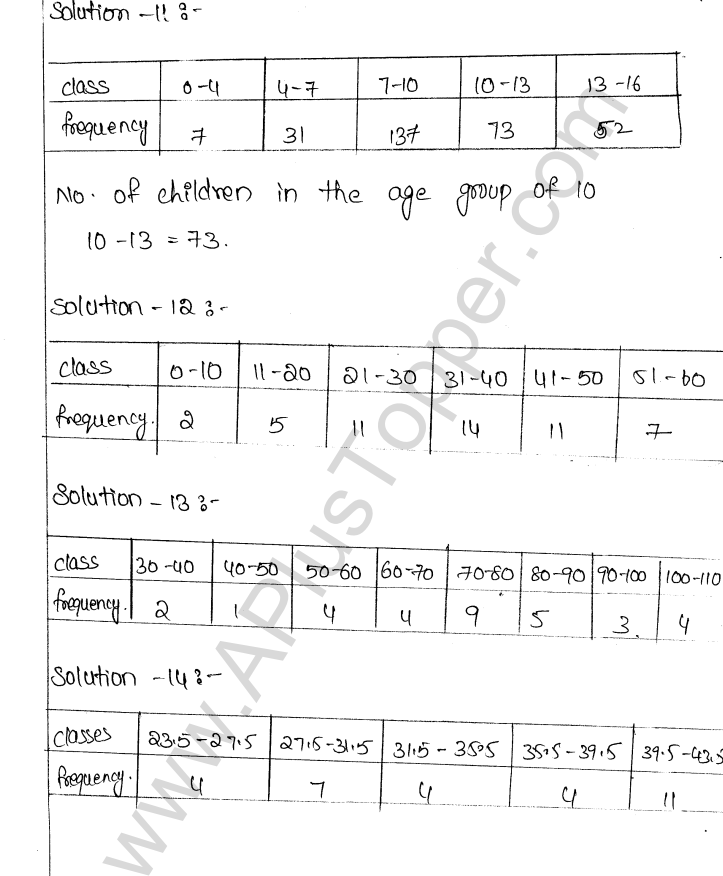 Solution -11 :-
class 0-4 4-7 7-10 10-13 13-16
frequency 7 31 137 73 52
No. of children in the age group of 10
10 -13 = 73.
Solution - 12 :-
class 0-10 11-20 21-30 31-40 41-50 51-60
frequency. 2 5 11 14 11 7
Solution - 13 :-
class 30-40 40-50 50-60 60-70 70-80 80-90 90-100 100-110
frequency. 2 1 4 4 9 5 3. 4
Solution -14 :-
classes 23.5-27.5 27.5-31.5 31.5 - 35.5 35.5-39.5 39.5-43.5
frequency. 4 7 4 4 11
www.APlusTopper.com